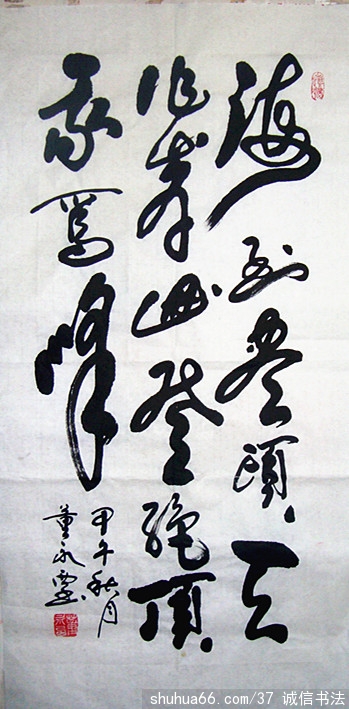 海到盡頭天
作岸山登絕頂
我為峰
甲午秋月
董永
shuhua66.com/37 诚信书法